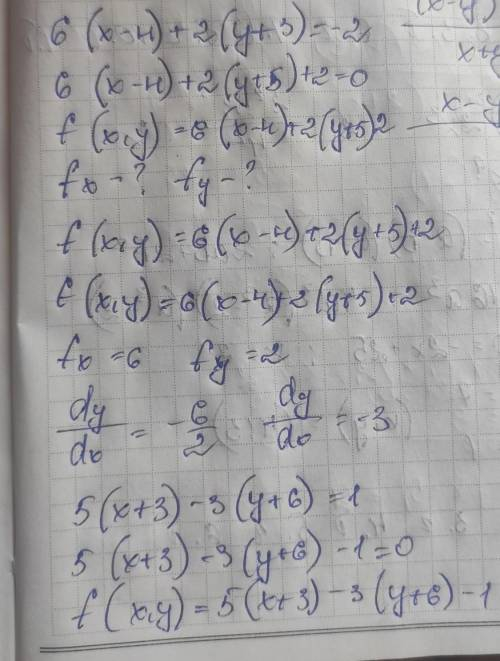 6 (x-4)+2(y+3)=-2
(x-y)
6 (x-4)+2(y+5)+2=0
f (x,y) =6(x-4)+2(y+5)2
x-y
fx-? fy-?
f(x,y)=6(x-4)+2(y+5)+2
f(x,y)=6(x-4)+2(y+5)+2
fx=6 fy=2
dy/dx = -6/2 dy/dx = -3
5(x+3)-3(y+6)=1
5(x+3)-3(y+6)-1=0
f(x,y)=5(x+3)-3(y+6)-1